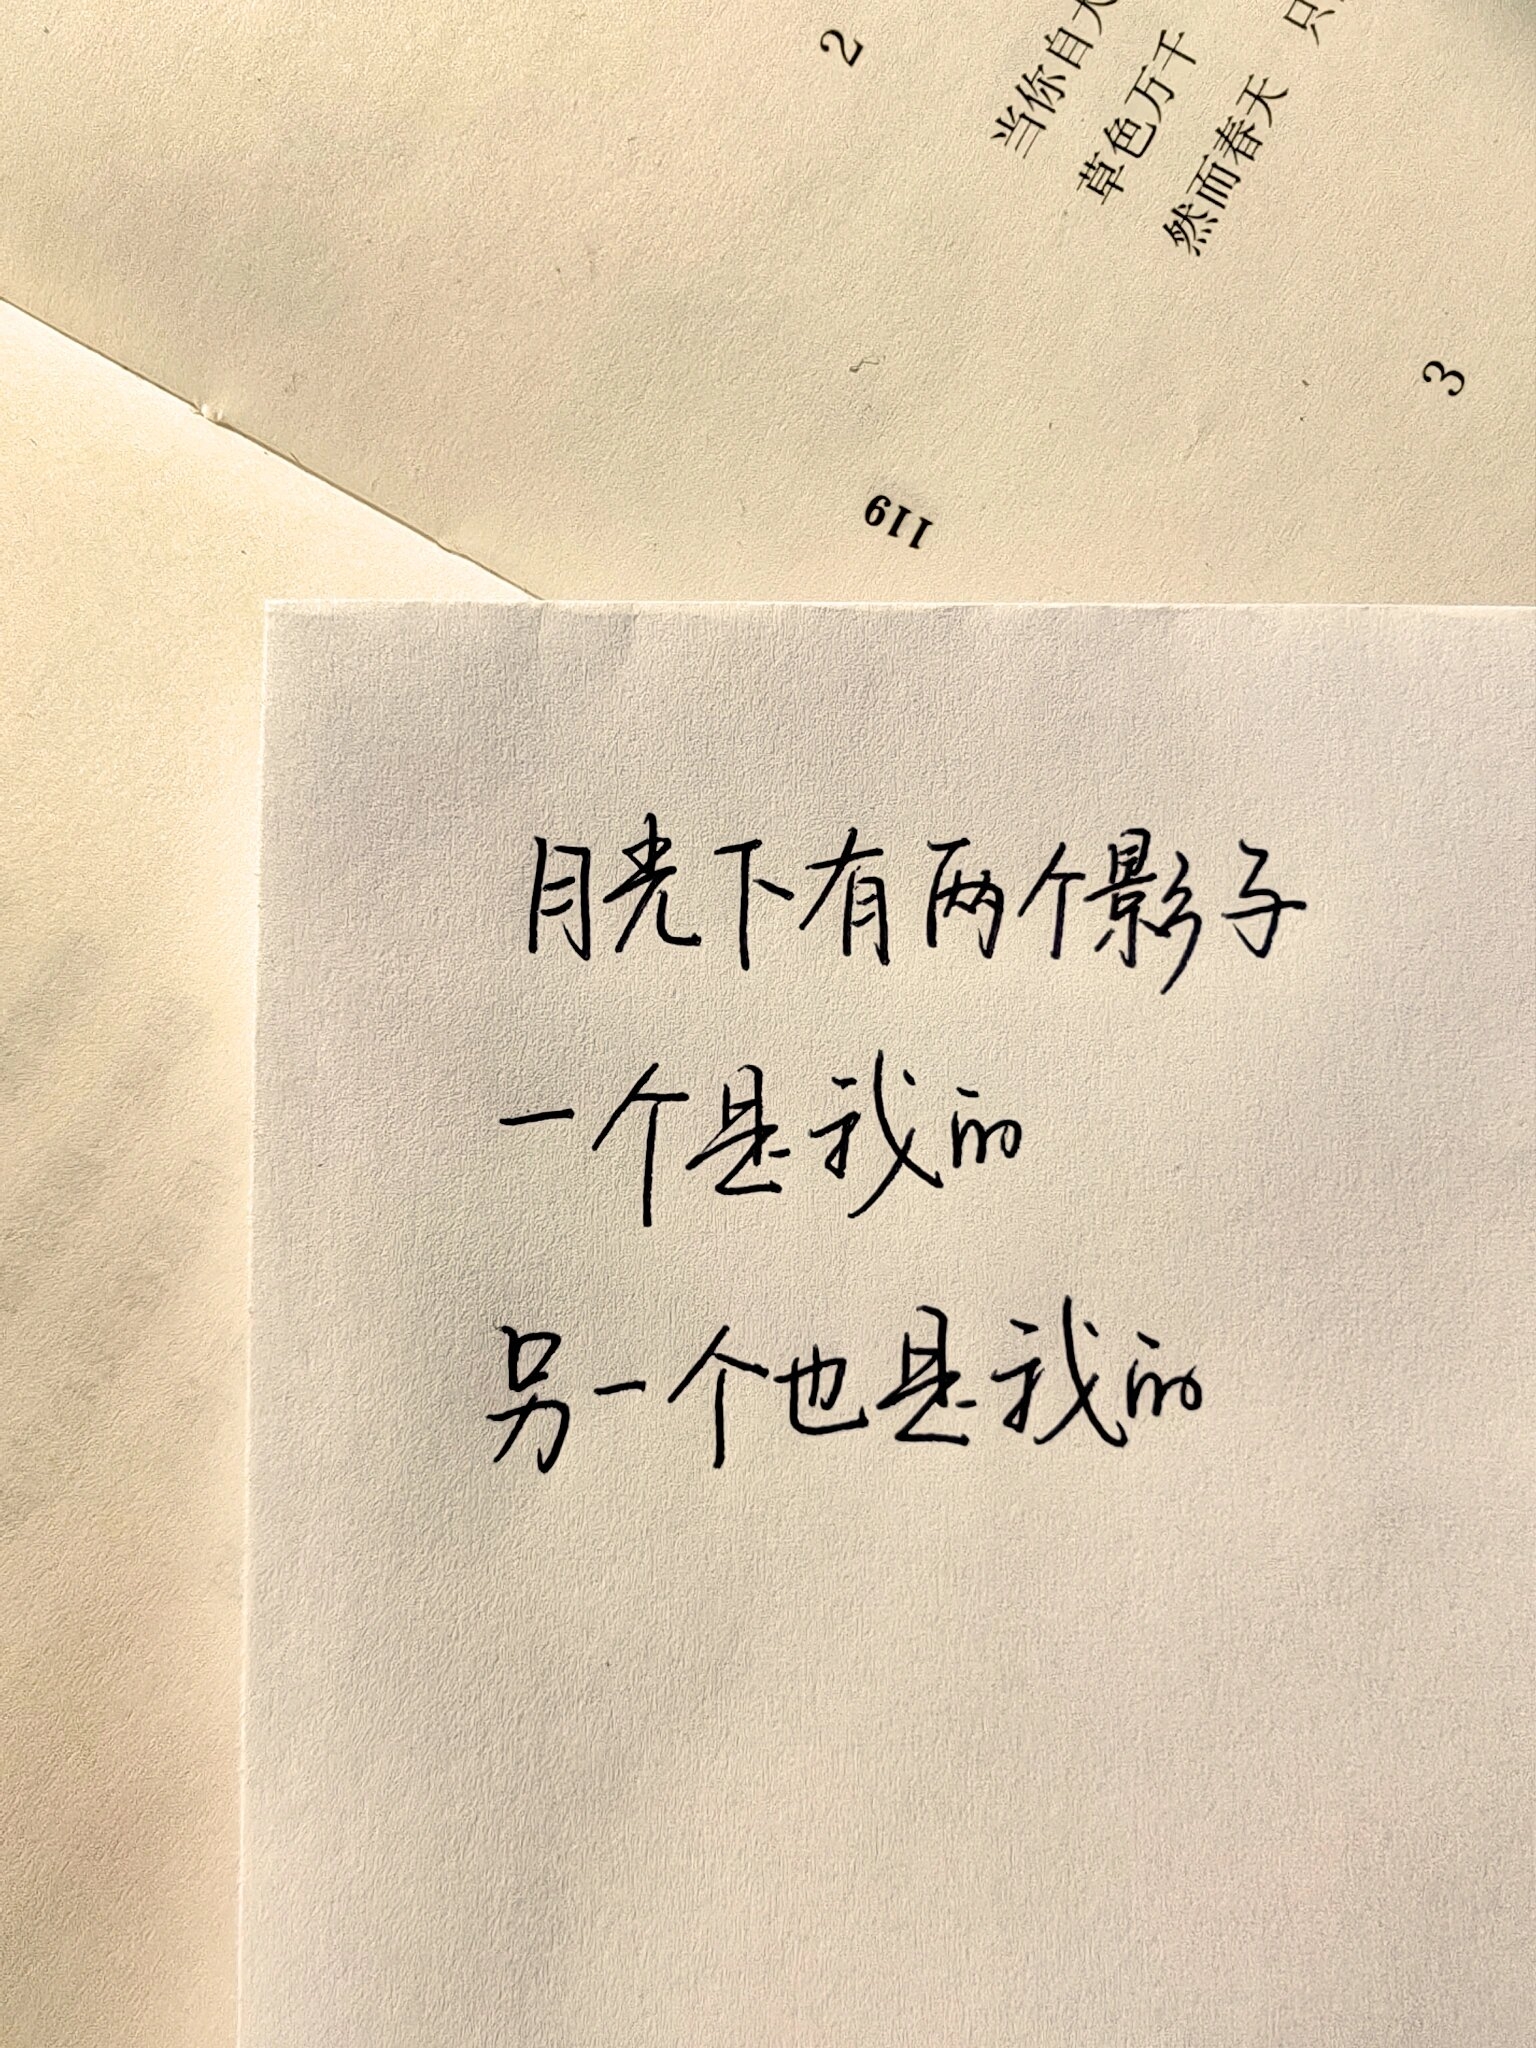 2
当你自大
草色万千
然而春天 只
3
119
月光下有两个影子
一个是我的
另一个也是我的